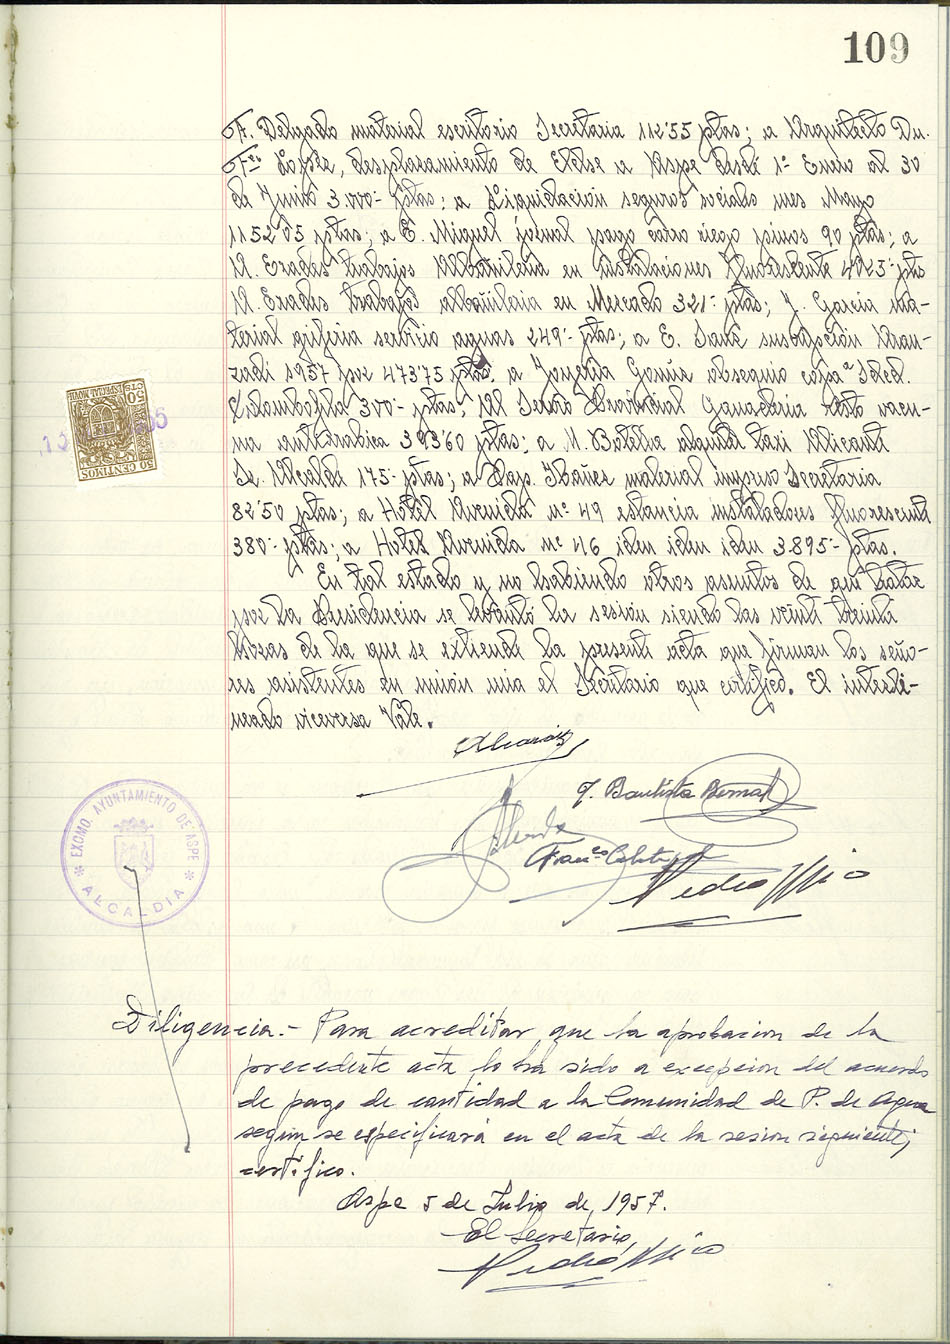 109
F. Delgado material escritorio Secretaria 112'55 ptas; a Arquitecto Dn.
Fco López, desplazamiento de Elche a Aspe desde 1º Enero al 30
de Junio 3.000'- ptas; a Liquidación seguros sociales mes Mayo
11527'05 ptas; a E. Miquel jornal pago carro riego pinos 90 ptas; a
A. Erades trabajos Albañileria en instalaciones fluorescente 4023'- ptas
A. Erades trabajos albañileria en Mercado 321'- ptas; J. García ma-
terial grifería servicio aguas 249'- ptas; a E. suscripción Aran-
zadi 1957 por 473'75 ptas. a obsequio copa
300'- ptas; Al Provincial Ganaderia vacu-
na antirrábica 393'60 ptas; a M. Botella alquiler taxi Alicante
Sr. Alcalde 175'- ptas; a Ibañez material impreso Secretaria
82'50 ptas; a Hotel Avenida nº 49 estancia instaladores fluorescente
380'- ptas; a Hotel Avenida nº 46 iden iden iden 3.895'- ptas.
En tal estado y no habiendo otros asuntos de que tratar
por la Presidencia se levantó la sesión siendo las veinte treinta
horas de la que se extiende la presente acta que firman los seño-
res asistentes en unión mia el Secretario que certifico. El interli-
neado viceversa Vale.
50 CTS. ESPECIAL MOVIL
50 CENTIMOS
EXCMO. AYUNTAMIENTO DE ASPE
ALCALDIA
J. Bautista Bernal
Franco
Pedro Mico
Diligencia.- Para acreditar que la aprobacion de la
precedente acta lo ha sido a excepcion del acuerdo
de pago de cantidad a la Comunidad de P. de Agua
segun se especificará en el acta de la sesion siguiente;
certifico.
Aspe 5 de Julio de 1957.
El Secretario,
Pedro Mico